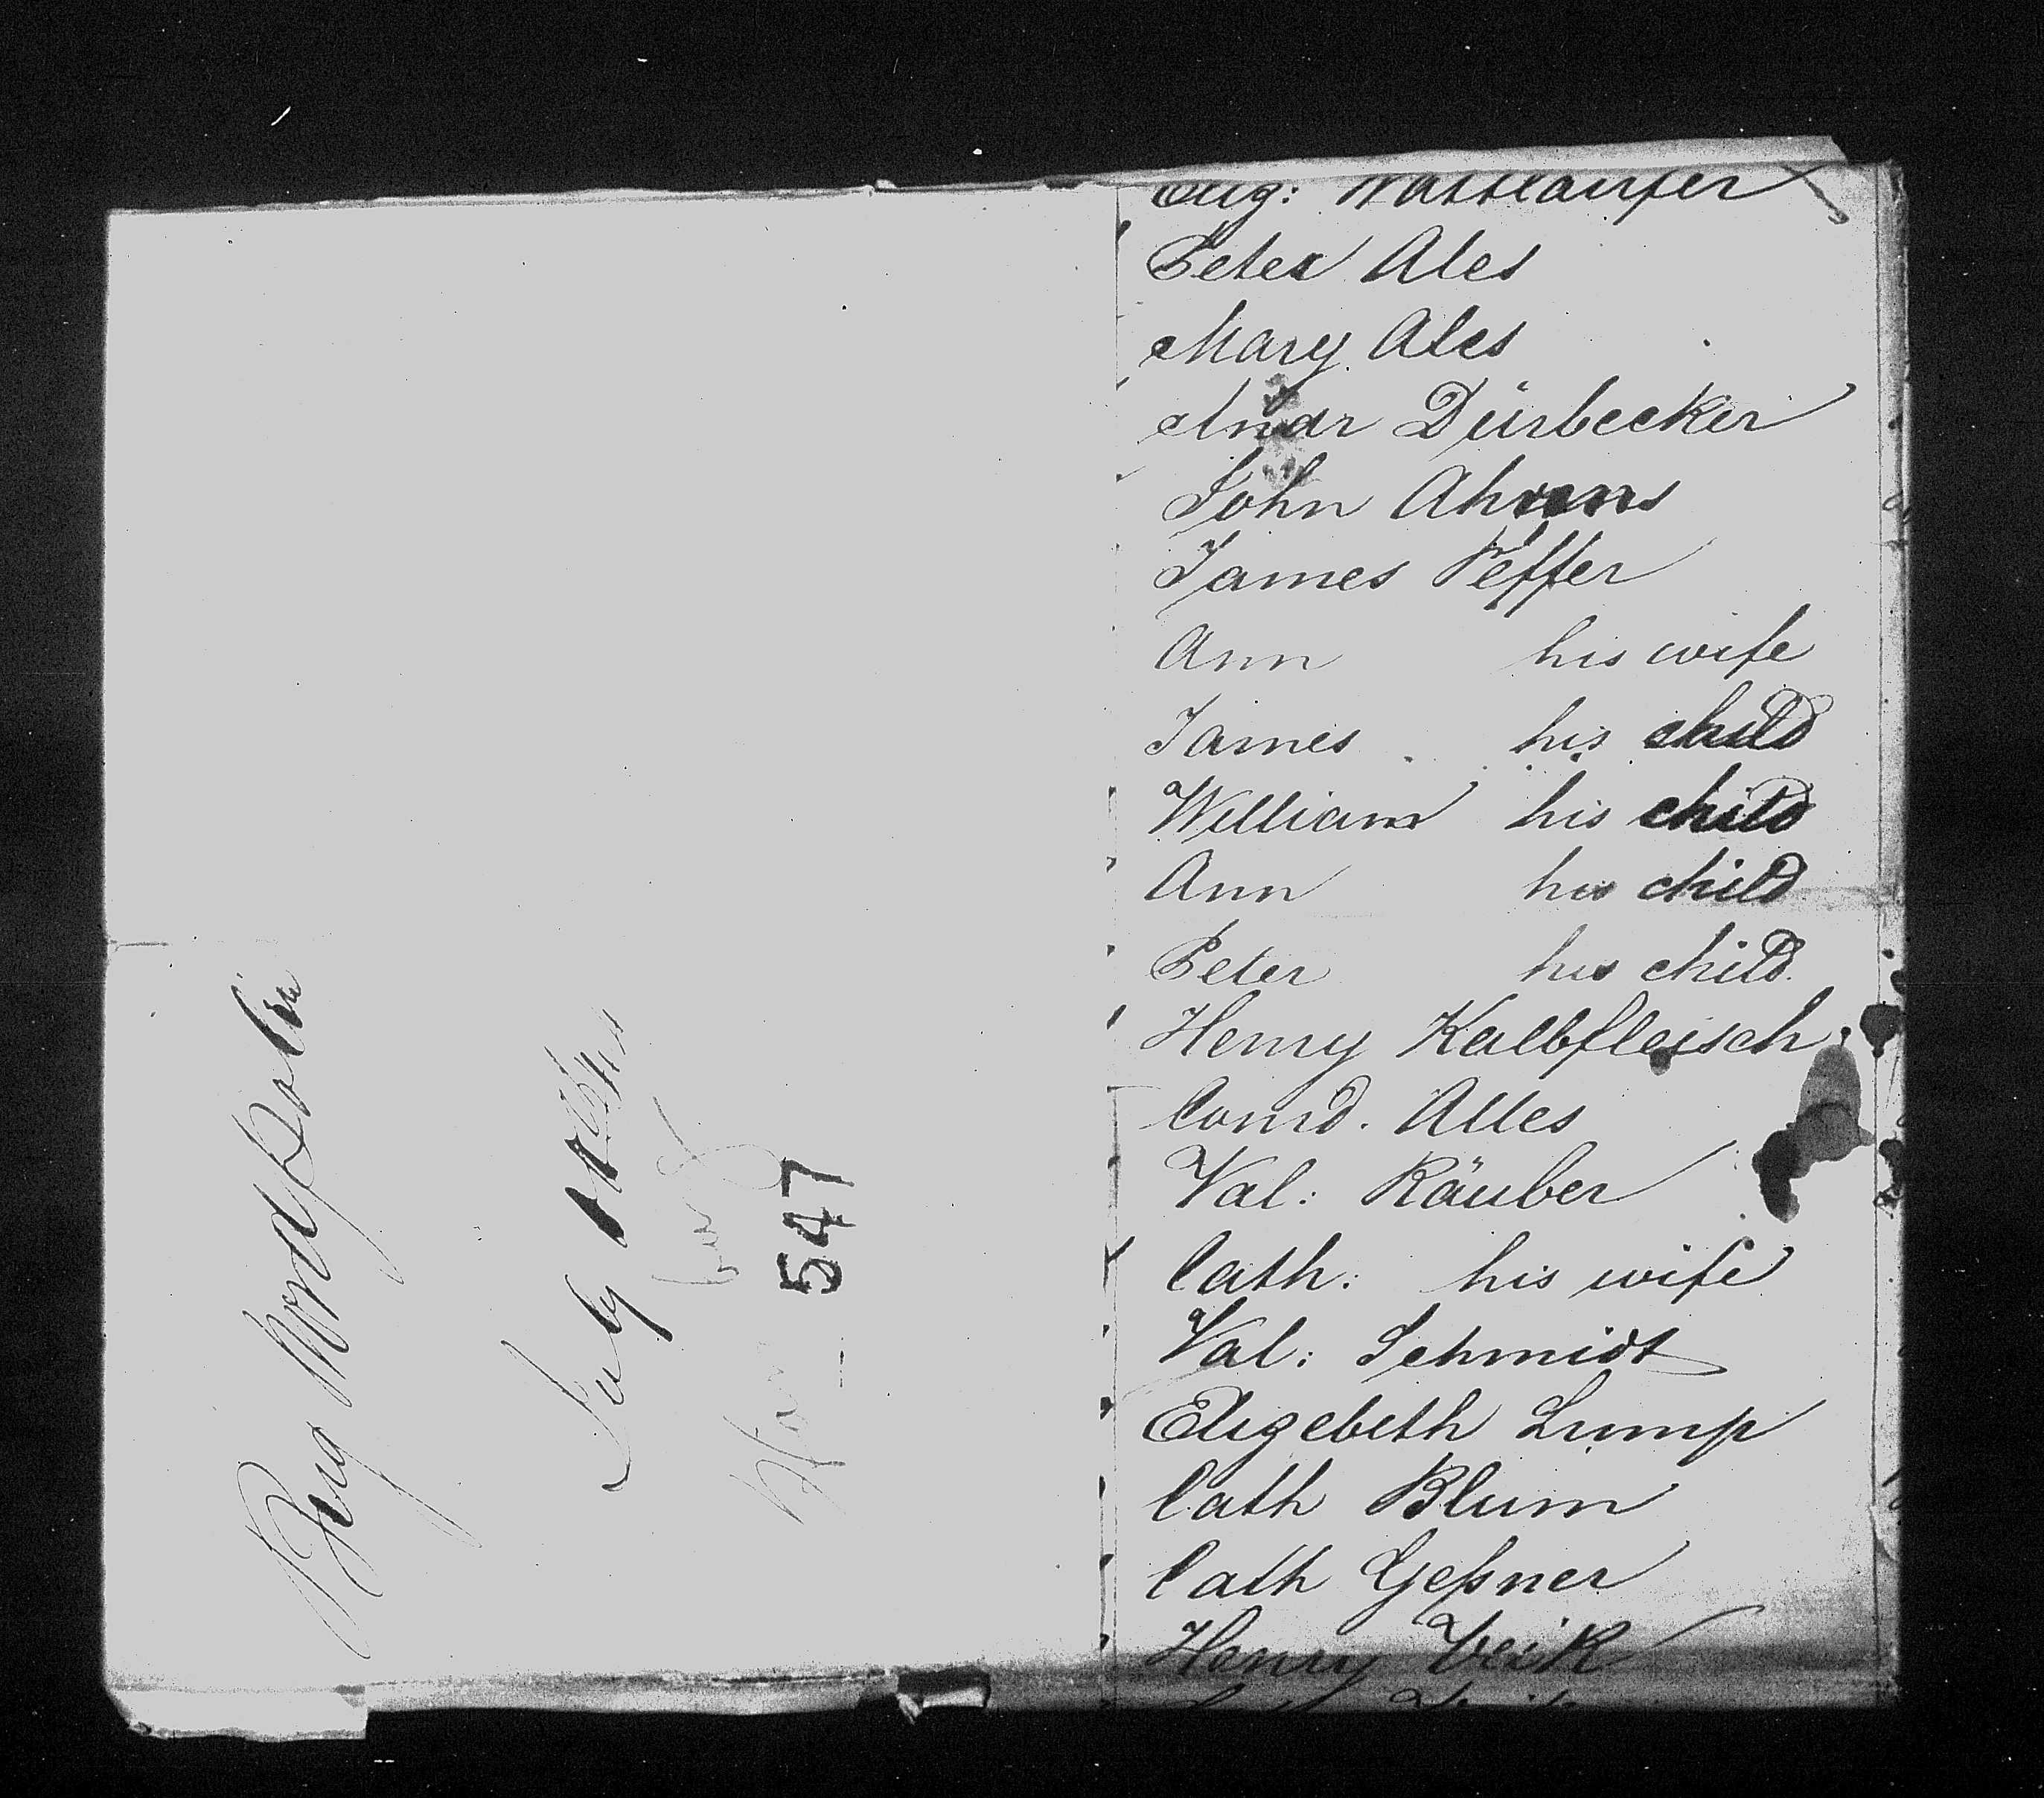 Brig
July
547
Peter Ales
Mary Ales
Andr Dürbecker
John Ahrens
James Peffer
Ann his wife
James his child
William his child
Ann his child
Peter his child.
Henry Kalbfleisch
Conrd. Alles
Val: Räuber
Cath: his wife
Val: Schmidt
Elizebeth Lump
Cath Blum
Cath Geßner
Henry Veik